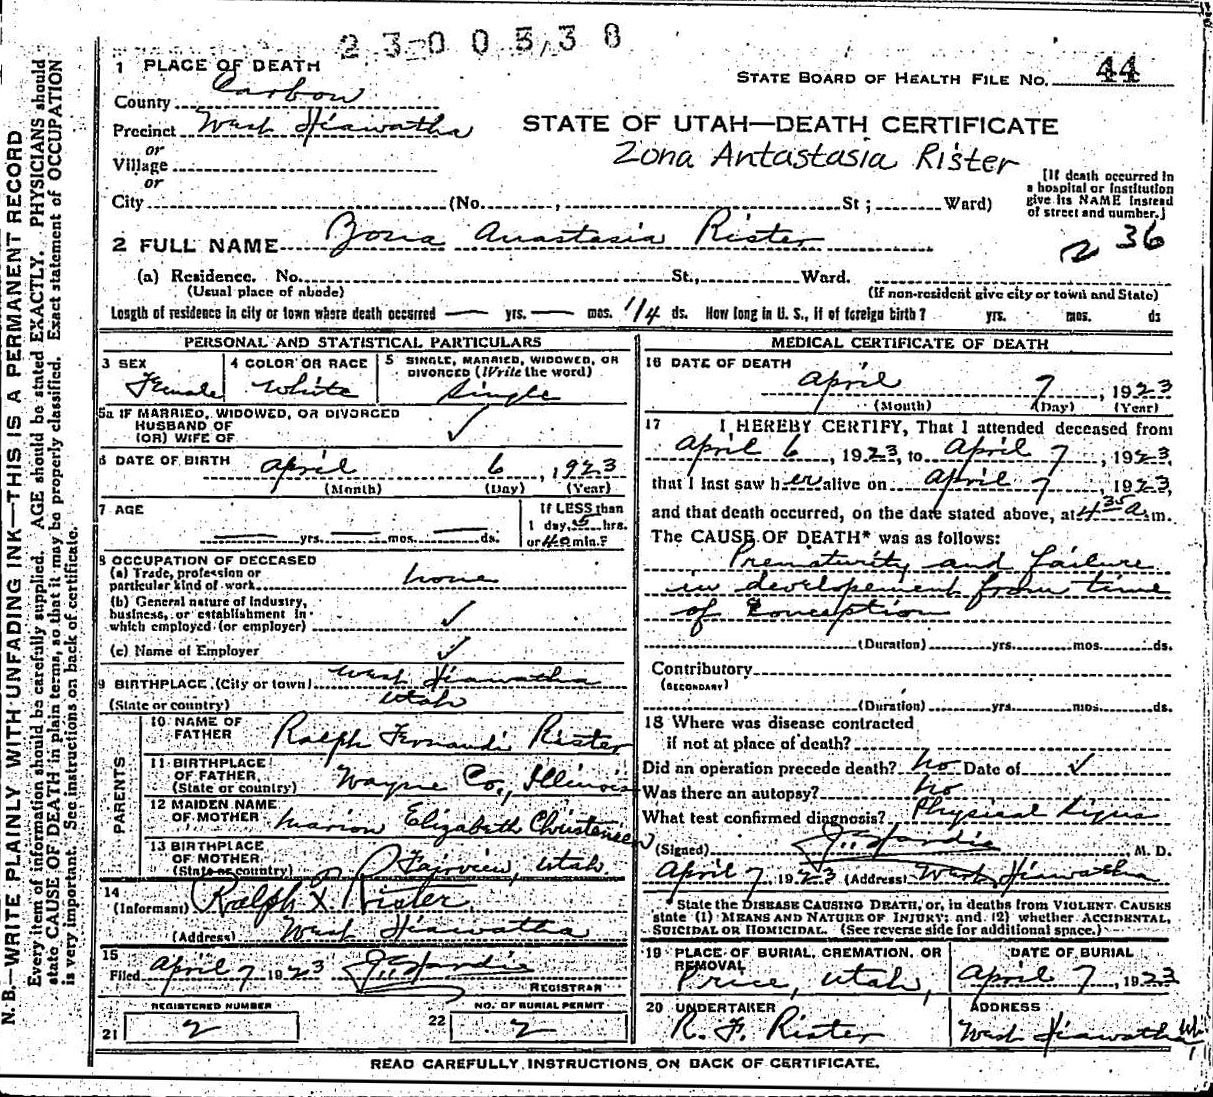 2300538
1 PLACE OF DEATH
STATE BOARD OF HEALTH FILE No. 44
County Carbon
Precinct West Hiawatha
STATE OF UTAH—DEATH CERTIFICATE
or
Zona Antastasia Rister
Village
or
[If death occurred in a hospital or institution give its NAME instead of street and number.]
City (No. , St; Ward)
2 FULL NAME Zona Anastasia Rister
2 36
(a) Residence. No. St., Ward.
(Usual place of abode) (If non-resident give city or town and State)
Length of residence in city or town where death occurred — yrs. — mos. 1/4 ds. How long in U. S., if of foreign birth? yrs. mos. ds
PERSONAL AND STATISTICAL PARTICULARS
3 SEX Female
4 COLOR OR RACE White
5 SINGLE, MARRIED, WIDOWED, OR DIVORCED (Write the word) Single
5a IF MARRIED, WIDOWED, OR DIVORCED
HUSBAND OF
(OR) WIFE OF ✓
6 DATE OF BIRTH April 6, 1923
(Month) (Day) (Year)
7 AGE — yrs. — mos. — ds.
If LESS than
1 day, 5 hrs.
or 40 min.?
8 OCCUPATION OF DECEASED
(a) Trade, profession or
particular kind of work none
(b) General nature of industry,
business, or establishment in
which employed (or employer) ✓
(c) Name of Employer ✓
9 BIRTHPLACE (City or town) West Hiawatha
(State or country) Utah
PARENTS
10 NAME OF
FATHER Ralph Fernandi Rister
11 BIRTHPLACE
OF FATHER
(State or country) Wayne Co., Illinois
12 MAIDEN NAME
OF MOTHER Marion Elizabeth Christensen
13 BIRTHPLACE
OF MOTHER
(State or country) Fairview, Utah.
14
(Informant) Ralph F Rister
(Address) West Hiawatha
15
Filed April 7 1923 J. E. Hardie
REGISTRAR
REGISTERED NUMBER NO. OF BURIAL PERMIT
21 2 22 2
MEDICAL CERTIFICATE OF DEATH
16 DATE OF DEATH
April 7, 1923
(Month) (Day) (Year)
17 I HEREBY CERTIFY, That I attended deceased from
April 6, 1923, to April 7, 1923,
that I last saw her alive on April 7, 1923,
and that death occurred, on the date stated above, at 4 35 a.m.
The CAUSE OF DEATH* was as follows:
Prematurity and failure
in development from time
of conception
(Duration) yrs. mos. ds.
Contributory
(SECONDARY)
(Duration) yrs. mos. ds.
18 Where was disease contracted
if not at place of death?
Did an operation precede death? No Date of ✓
Was there an autopsy? No
What test confirmed diagnosis? Physical signs
(Signed) J. E. Hardie M. D.
April 7 1923 (Address) West Hiawatha
State the DISEASE CAUSING DEATH, or, in deaths from VIOLENT CAUSES
state (1) MEANS AND NATURE OF INJURY; and (2) whether ACCIDENTAL,
SUICIDAL OR HOMICIDAL. (See reverse side for additional space.)
19 PLACE OF BURIAL, CREMATION, OR
REMOVAL
Price, Utah,
DATE OF BURIAL
April 7, 1923
20 UNDERTAKER
R. F. Rister
ADDRESS
West Hiawatha
READ CAREFULLY INSTRUCTIONS ON BACK OF CERTIFICATE.
N. B.—WRITE PLAINLY WITH UNFADING INK—THIS IS A PERMANENT RECORD
Every item of information should be carefully supplied. AGE should be stated EXACTLY. PHYSICIANS should
state CAUSE OF DEATH in plain terms, so that it may be properly classified. Exact statement of OCCUPATION
is very important. See instructions on back of certificate.